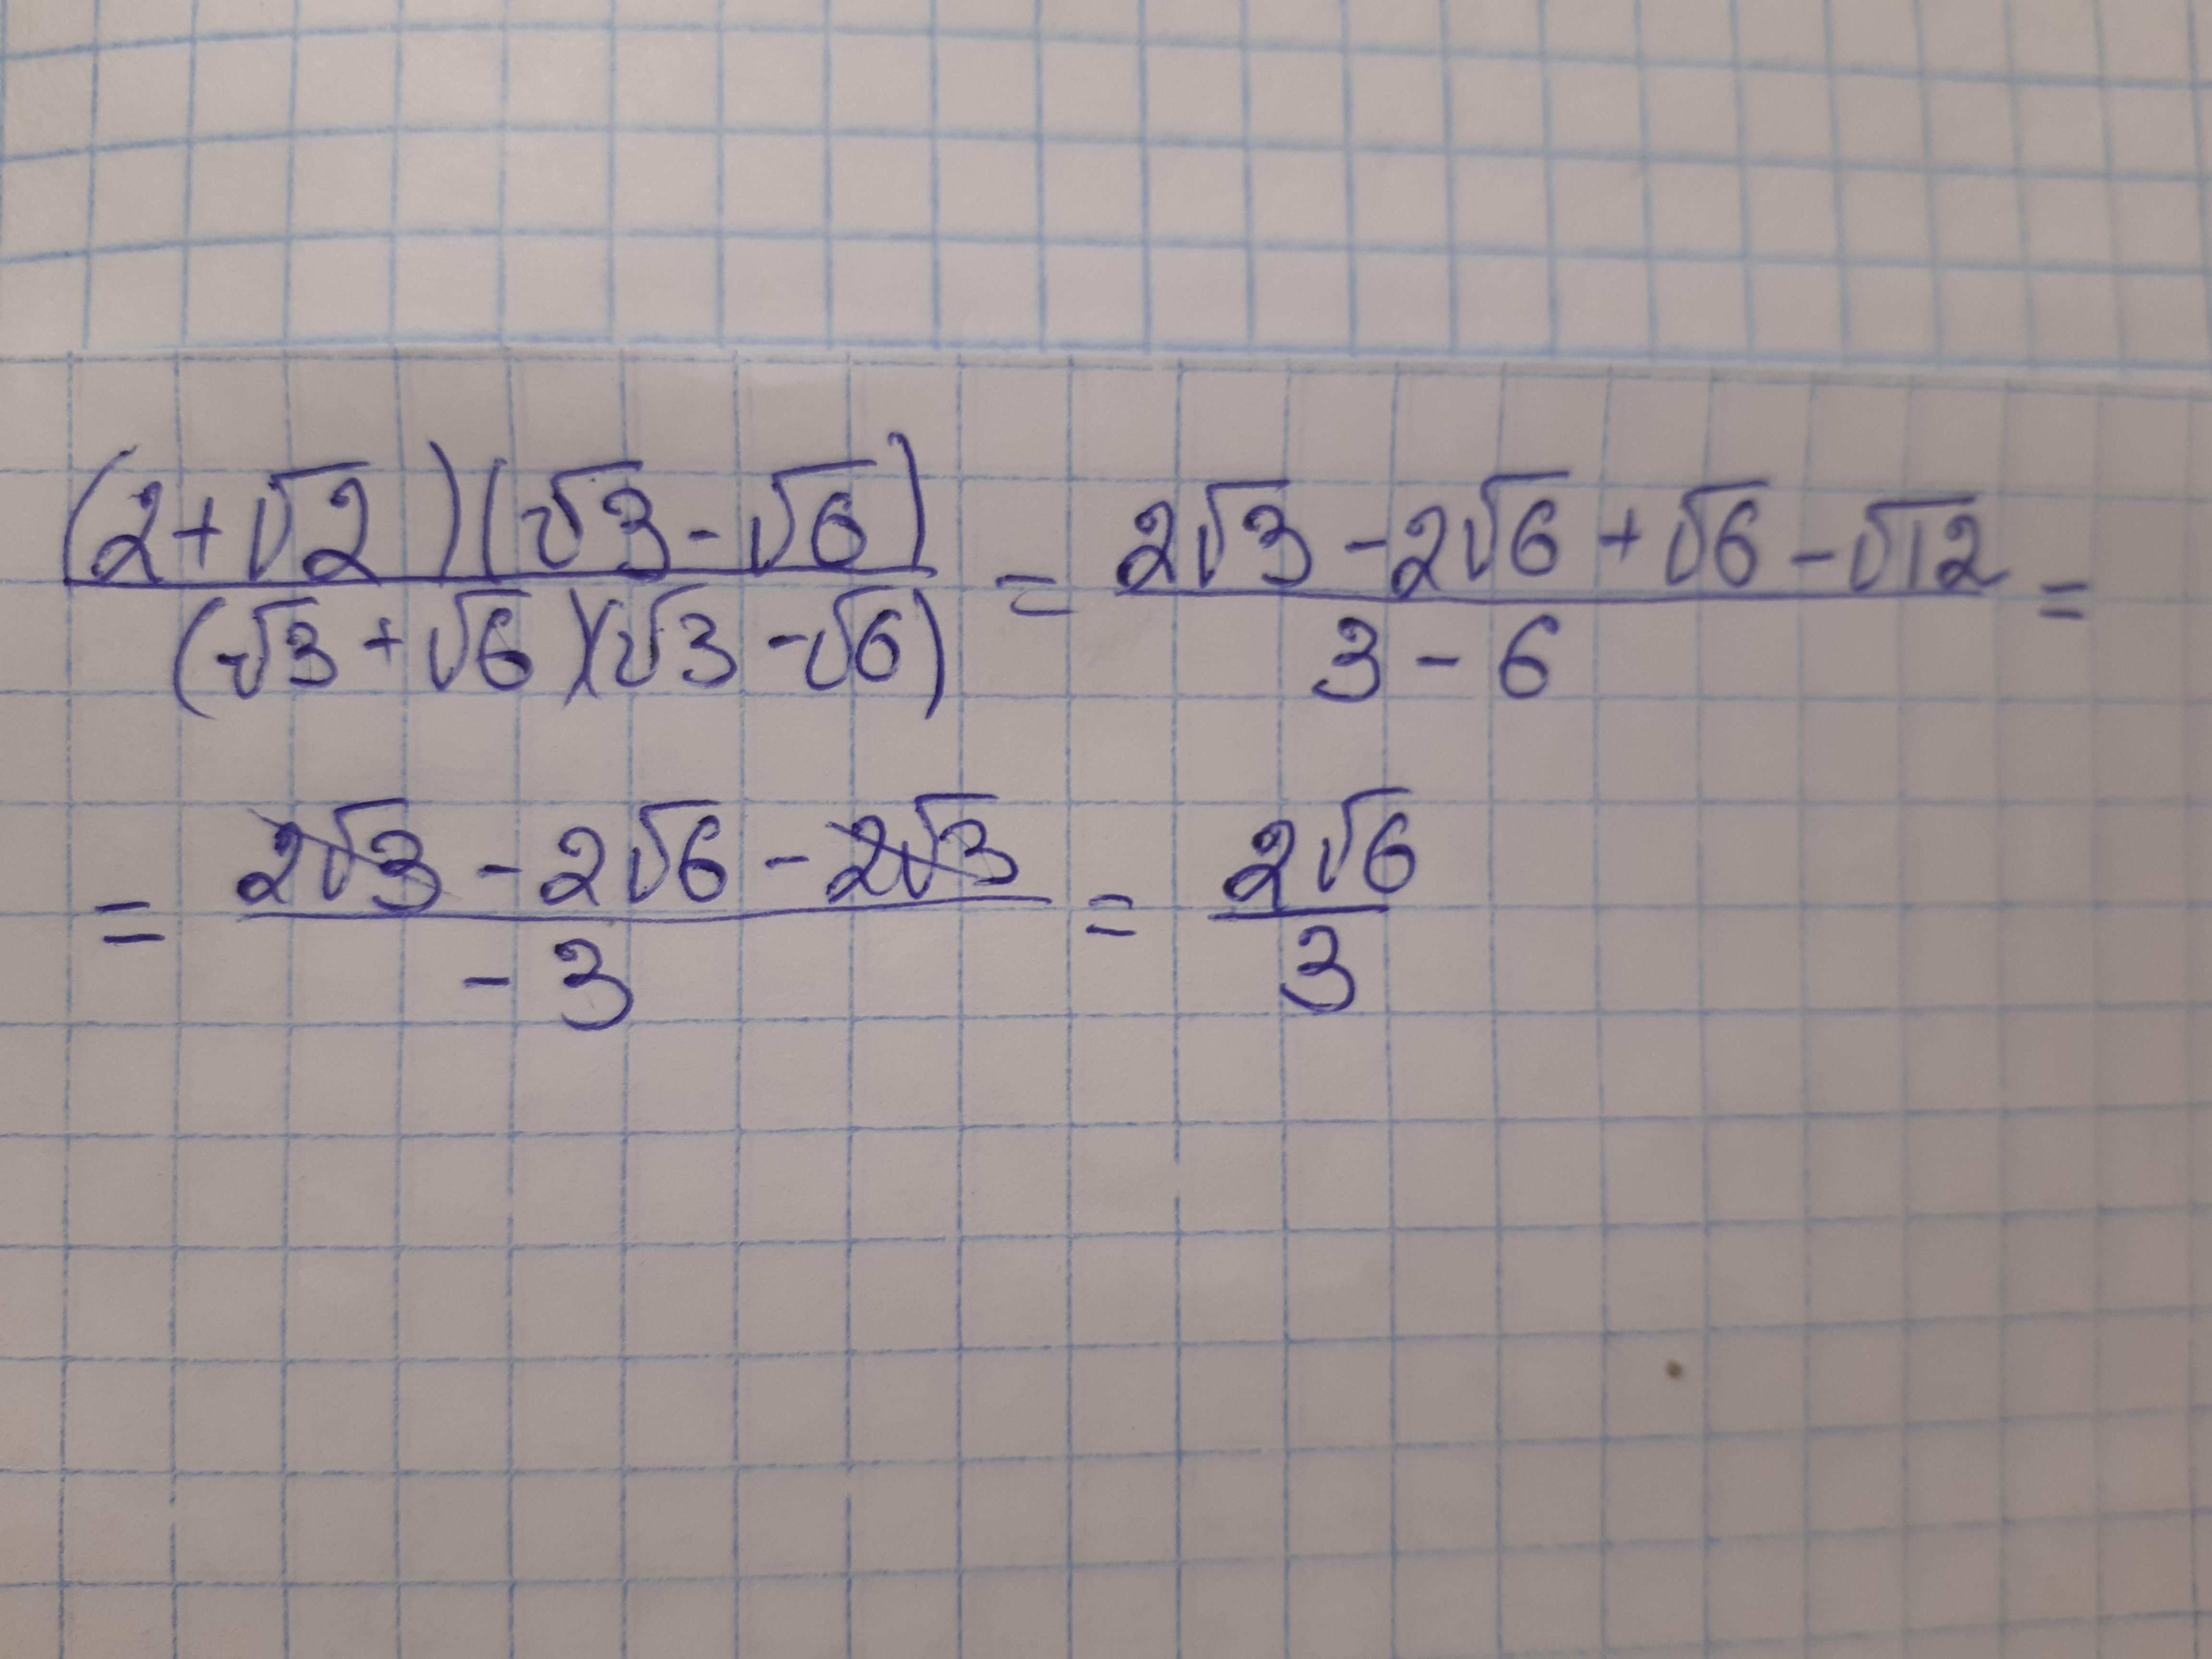 (2+√2)(√3-√6)/(√3+√6)(√3-√6) = 2√3-2√6+√6-√12/3-6 =
= 2√3-2√6-2√3/-3 = 2√6/3